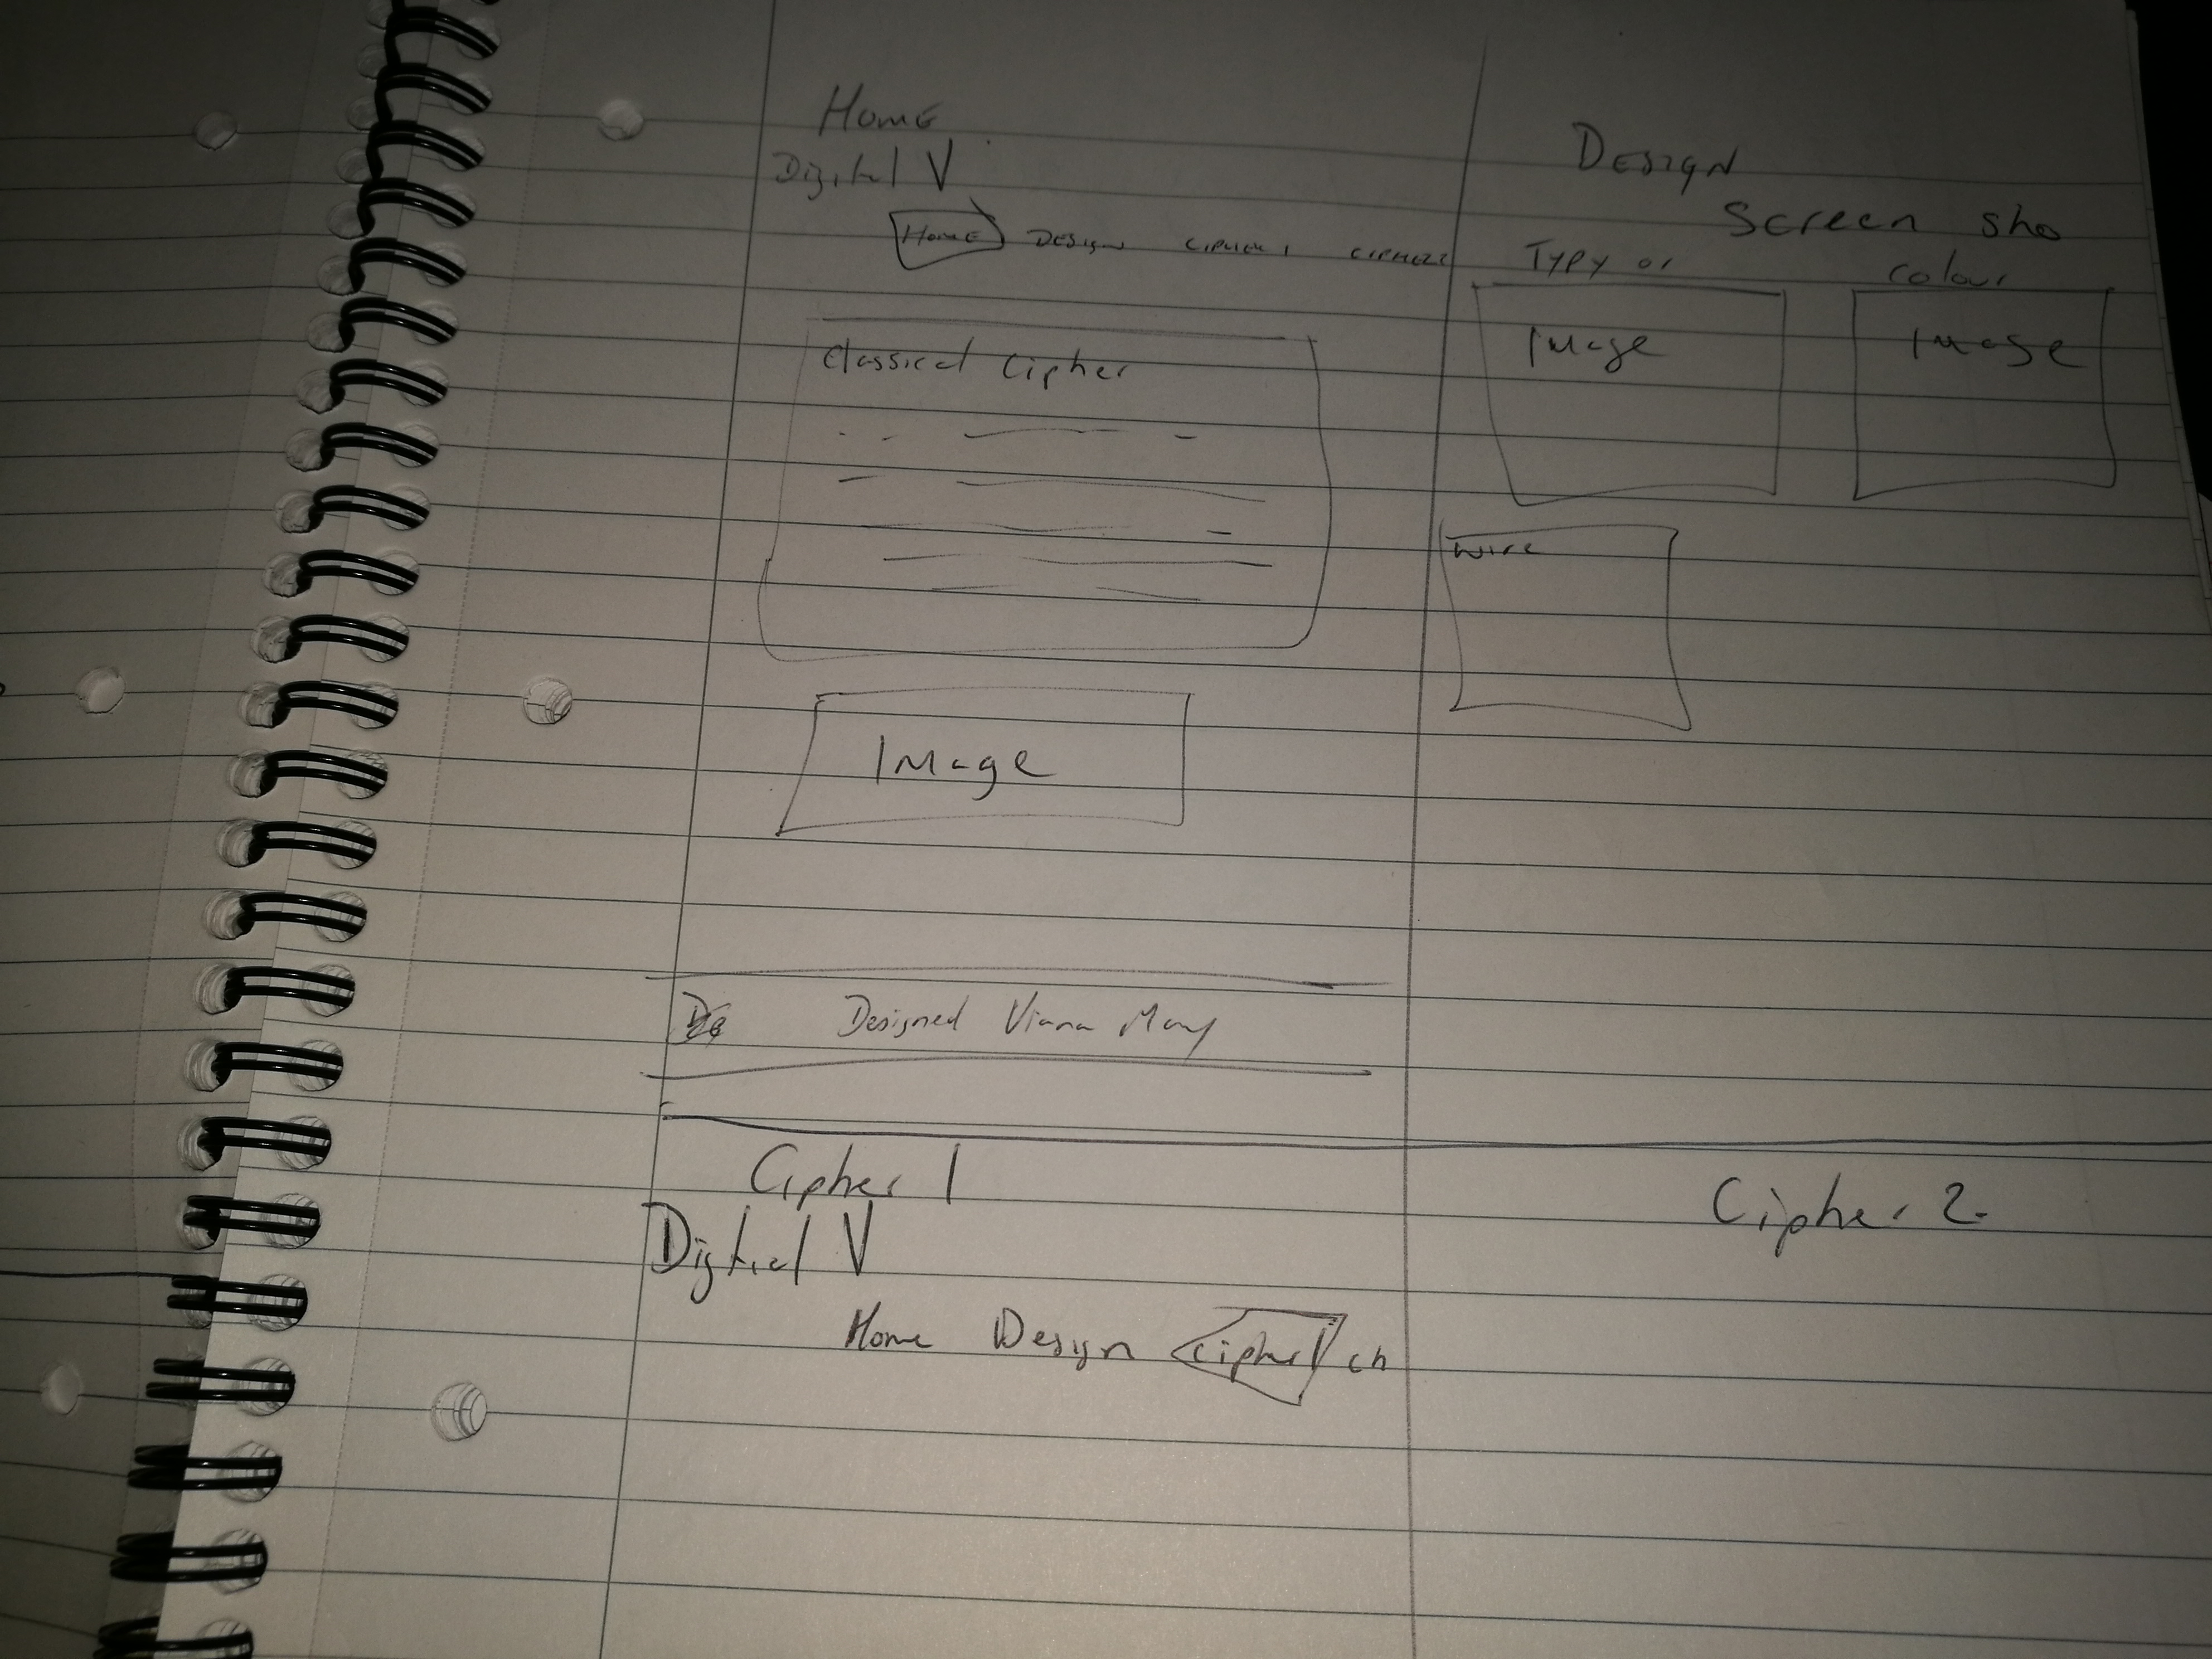 Home
Digital V
Home Design Cipher 1 Cipher 2
Classical Cipher
Image
Designed Viana
Design
Screen sho
Typy or Colour
Image Image
Wire
Cipher 1
Digtial V
Home Design Cipher 1 ch
Cipher 2.